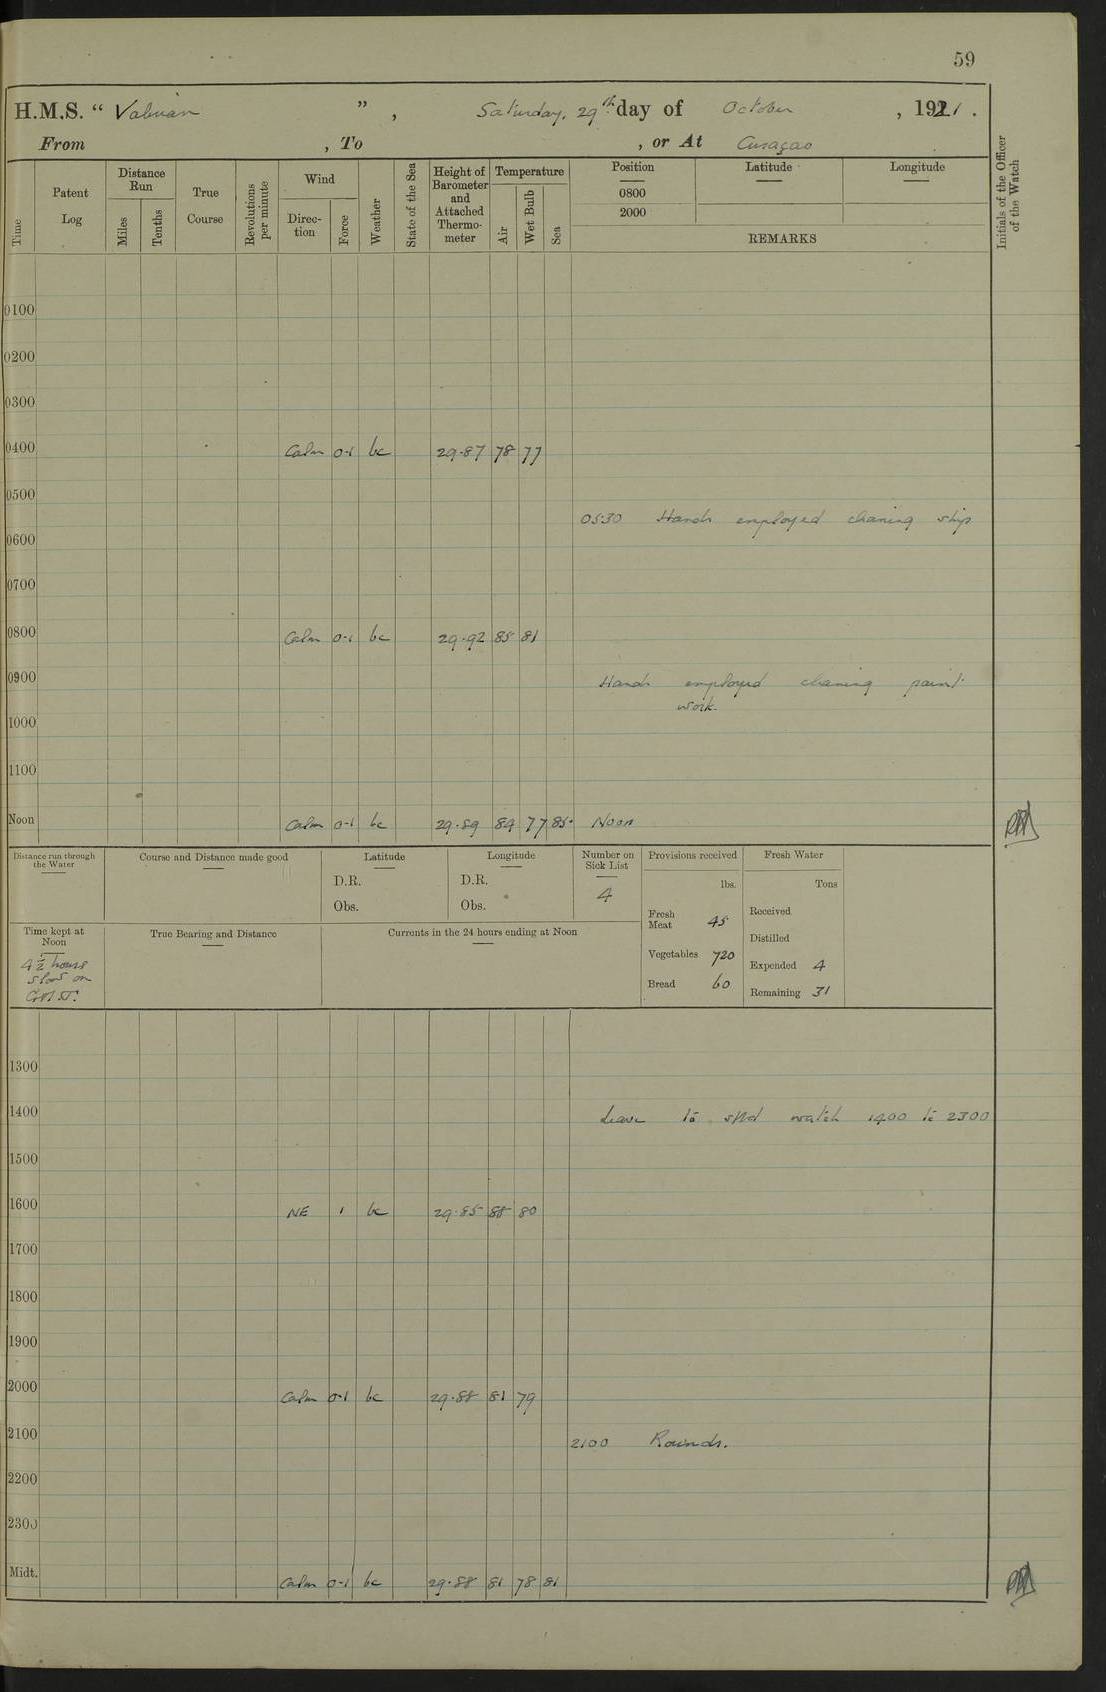 59
H.M.S. " Valerian " , Saturday, 29th day of October , 1921 .
From , To , or At Curaçao
Time
Patent Log
Distance Run
Miles
Tenths
True Course
Revolutions per minute
Wind
Direction
Force
Weather
State of the Sea
Height of Barometer and Attached Thermometer
Temperature
Air
Wet Bulb
Sea
Position
0800
2000
Latitude
Longitude
REMARKS
Initials of the Officer of the Watch
0100
0200
0300
0400 Calm 0-1 bc 29.87 78 77
0500
0530 Hands employed cleaning ship
0600
0700
0800 Calm 0-1 bc 29.92 85 81
0900 Hands employed cleaning paint
work.
1000
1100
Noon Calm 0-1 bc 29.89 89 77 85 Noon
Distance run through the Water
Course and Distance made good
Latitude
D.R.
Obs.
Longitude
D.R.
Obs.
Number on Sick List
4
Provisions received
lbs.
Fresh Meat 45
Vegetables 720
Bread 60
Fresh Water
Tons
Received
Distilled
Expended 4
Remaining 31
Time kept at Noon
4½ hours
slow on
G.M.T.
True Bearing and Distance
Currents in the 24 hours ending at Noon
1300
1400 Leave to stbd watch 1400 to 2300
1500
1600 NE 1 bc 29.85 88 80
1700
1800
1900
2000 Calm 0-1 bc 29.88 81 79
2100 2100 Rounds.
2200
2300
Midt. Calm 0-1 bc 29.88 81 78 81